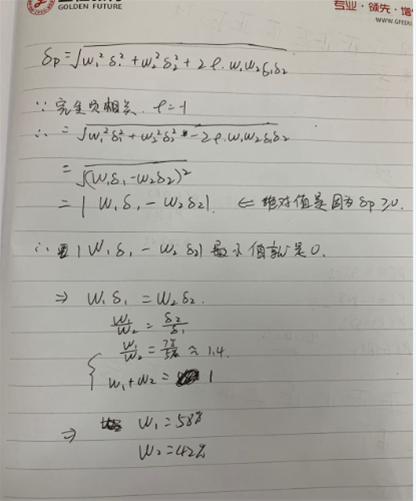 GOLDEN FUTURE
专业·领先·增
WWW.GFEDU
δp=√w₁²δ₁²+w₂²δ₂²+2ρ·w₁w₂δ₁δ₂
∵ 完全负相关. ρ=-1
∴ =√w₁²δ₁²+w₂²δ₂²-2ρ·w₁w₂δ₁δ₂
=√(w₁δ₁-w₂δ₂)²
=|w₁δ₁-w₂δ₂|. ⇐ 绝对值是因为δp≥0.
∴ |w₁δ₁-w₂δ₂| 最小值就是0.
⇒ w₁δ₁=w₂δ₂.
w₁/w₂=δ₂/δ₁
w₁/w₂=7%/5%≈1.4.
w₁+w₂=1
⇒ w₁=58%
w₂=42%